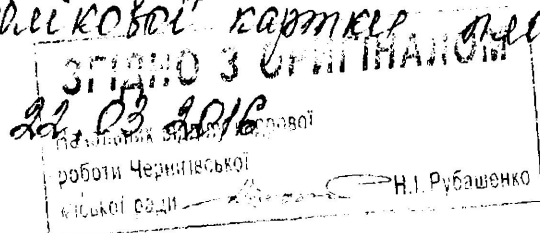 облікової картки
ЗГІДНО З ОРИГІНАЛОМ
22.03.2016
Начальник відділу кадрової
роботи Чернігівської
міської ради Н.І. Рубашенко